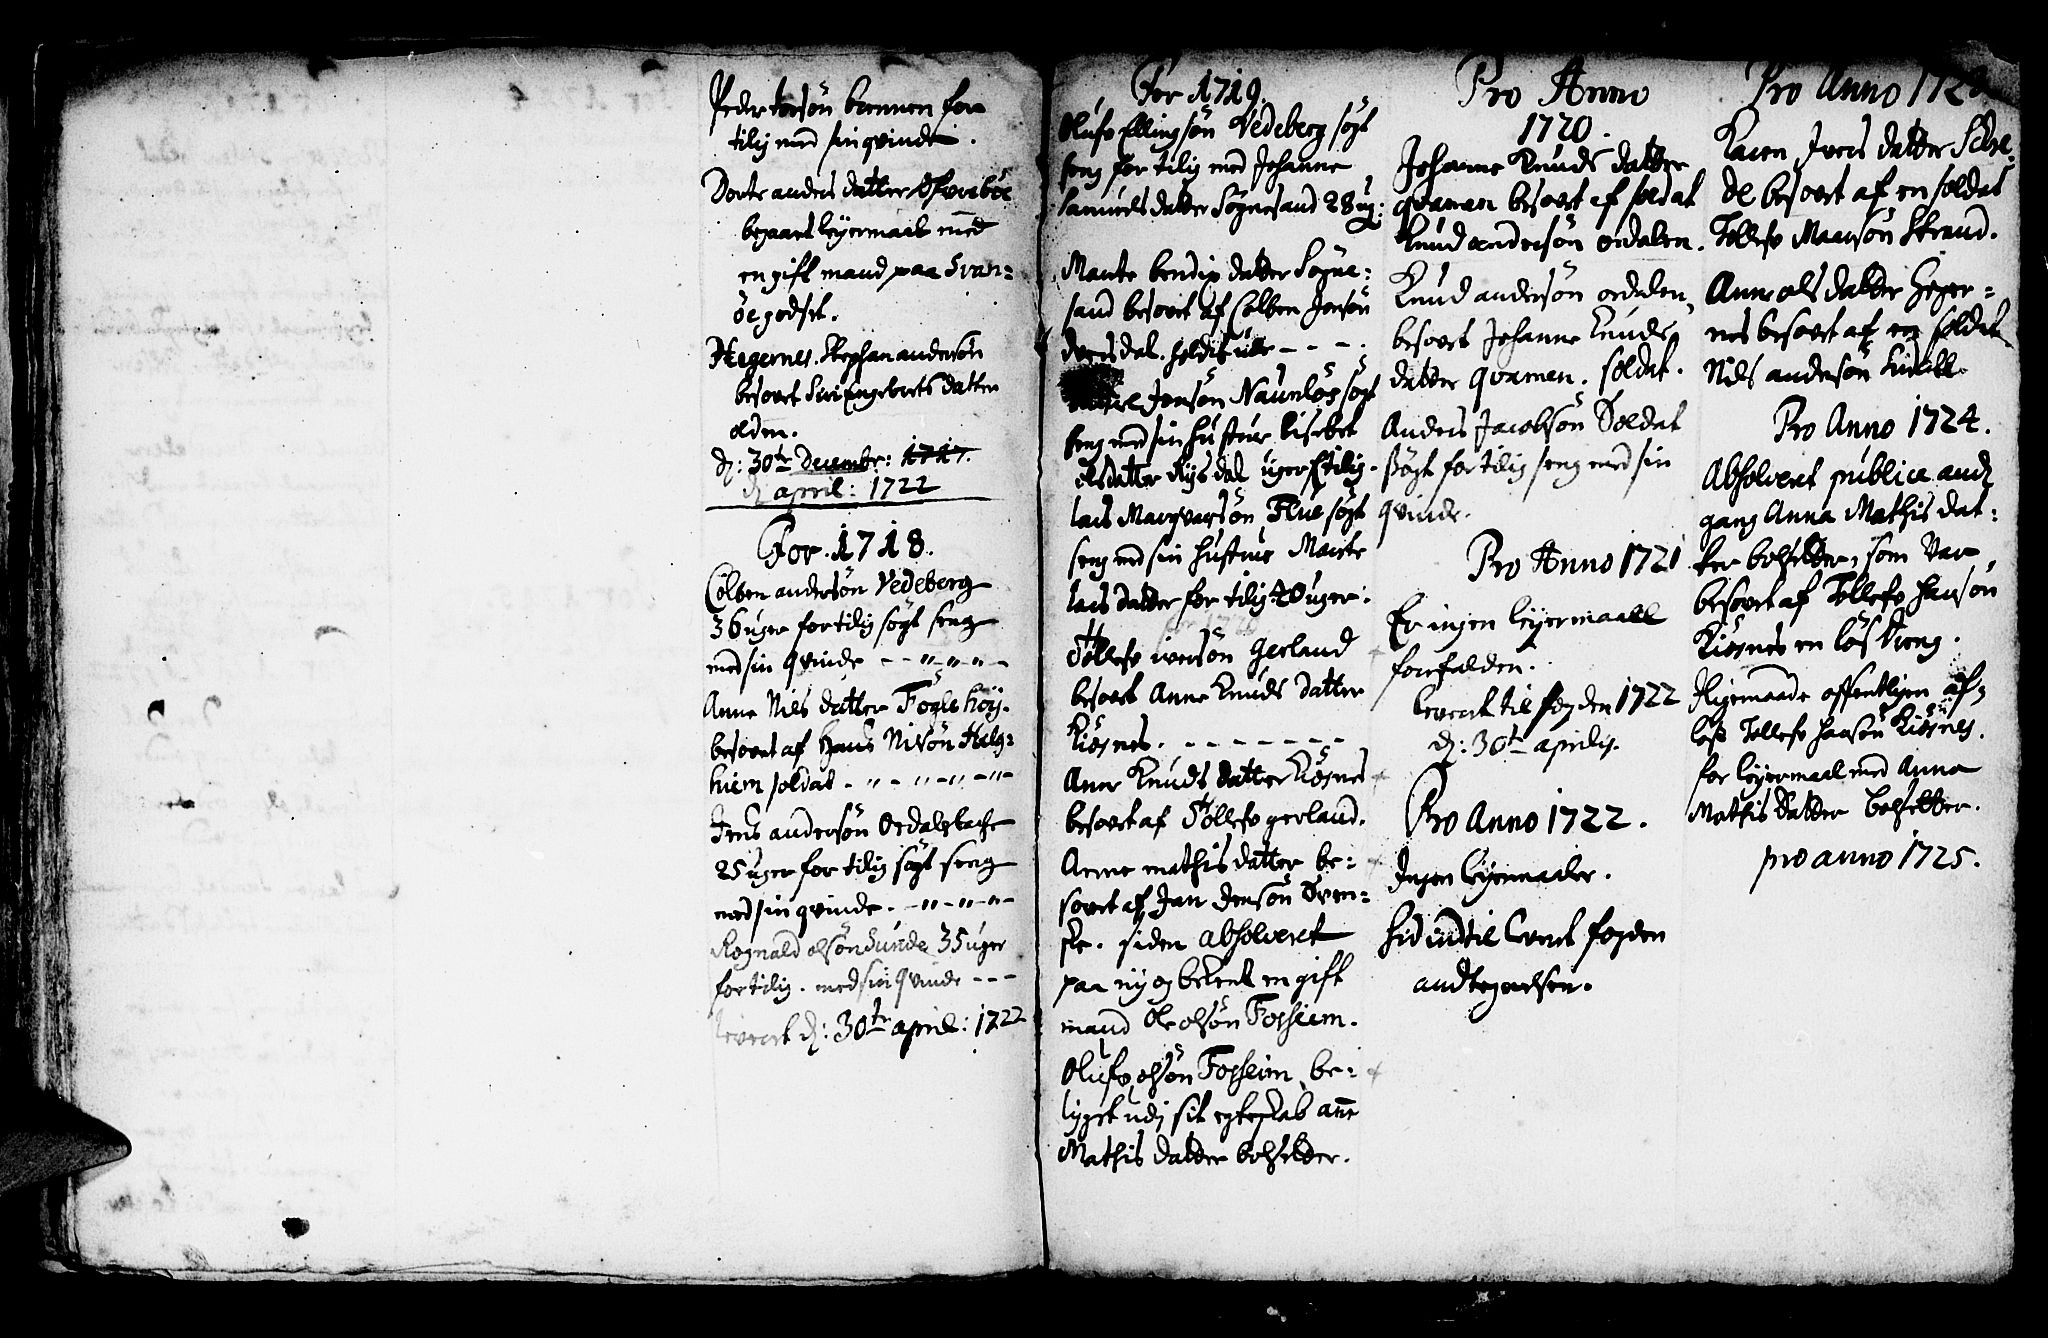 Peder Iorsön brennen for
tilig med sin qvinde.
Dorte anders datter
begaaet leyermaal med
en gift mand paa Svan=
öe godset.
Hegernes. Stephan andersön
besovet Siri Engebrets datter
olden.
d: 30te Decembr: 1717.
d april: 1722
For. 1718.
Colben andersön Vedeberg
36 uger for tilig sögt seng
med sin qvinde - - " - " - " -
Anna Nils datter Fogle höy.
besovet af Hans Nilsön Helg=
hiem soldat - " - " - " - " - "
Jens andersön Oedals
25 uger for tilig sögt seng
med sin qvinde. - " - " - " -
Rognald olsön Sunde 35 uger
for tilig. med sin qvinde - - -
leveret d: 30te april: 1722
For 1719.
Olufe Ellingsön Vedeberg sögt
seng for tilig med Johanne
Samuels datter Sognesand 28 ug:
Marite bendix datter Sogne=
sand besovet af Colben Jonsön
- - - -
Jensön Naunlös sögt
seng med sin hustrue lisebet
olsdatter uger tilig.
lars Marqvarsön Flue sögt
seng med sin hustrue Marite
lars datter for tilig 20 uger.
for 1720
Tollefe iversön Gerland
besovet Anne Knuds datter
Kiösnes. - - - - - - -
Anne Knuds datter Kiösnes
besovet af Tollefe gerland.
Anne mathis datter be=
sovet af Jan Jensön Sven=
ske. siden absolveret
paa ny og bekent en gift
mand Ole olsön Fosheim.
Olufe olsön Fosheim be=
ligget udj sit egteskab anne
Mathis datter bolsetter.
Pro Anno
1720.
Johanne Knuds datter
qvamen besovet af soldat
Knud andersön ordalen.
Knud andersön ordalen
besovet Johanne Knuds
datter qvamen. soldat.
Anders Jacobsön Soldat
sögt for tilig seng med sin
qvinde.
Pro Anno 1721
Er ingen leyermaall
forfalden.
leveret til fogden 1722
d: 30te aprilis.
Pro Anno 1722.
Ingen leyermaaler.
hid indtil leveret fogden
andtegnelsen.
Pro Anno 1723
Karen Ivers datter Sehe
de besovet af en soldat
Tollefe Monsön Strand.
Anne ols datter Heger=
nes besovet af en soldat
Nils andersön
Pro Anno 1724.
Absolveret publice and
gang Anna Mathis dat=
ter bolsetter, som var
besovet af Tollefe Hansön
Kiösnes en lös dreng.
Ligemaade offentligen af=
löst Tollefe hansön Kiösnes.
for leyermaal med Anna
Mathis datter bolsetter.
pro anno 1725.